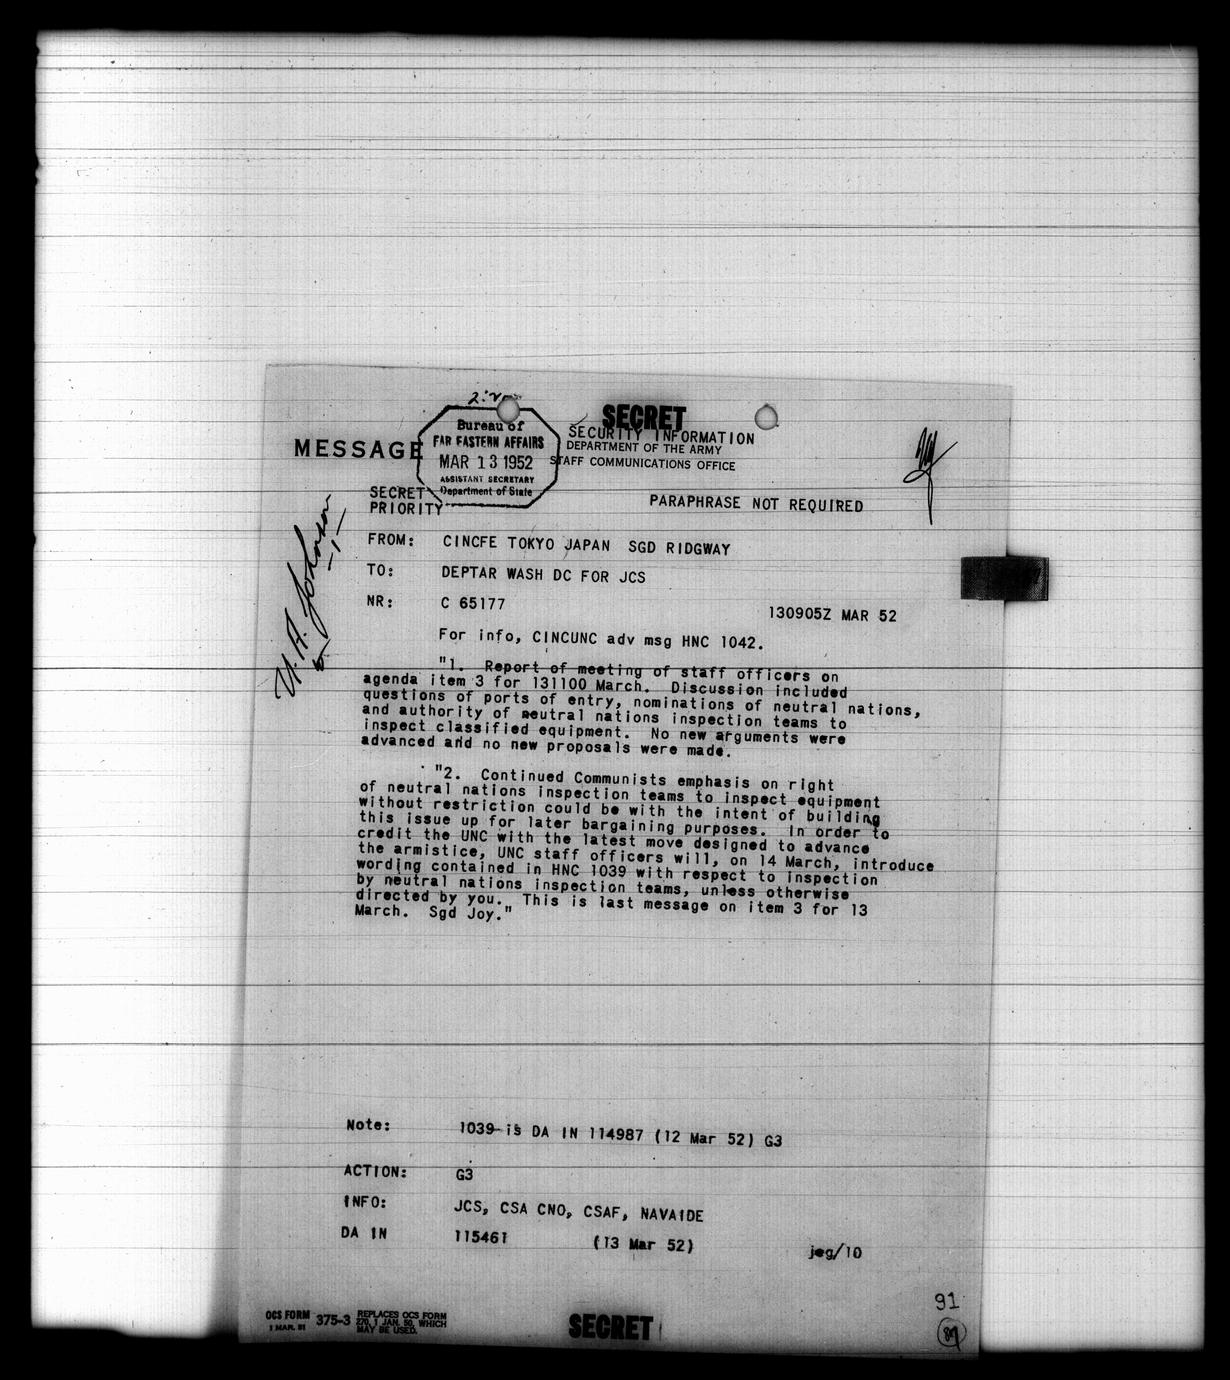 SECRET
SECURITY INFORMATION
MESSAGE
DEPARTMENT OF THE ARMY
STAFF COMMUNICATIONS OFFICE
Bureau of
FAR EASTERN AFFAIRS
MAR 13 1952
ASSISTANT SECRETARY
Department of State
SECRET
PRIORITY
PARAPHRASE NOT REQUIRED
U.A. Johnson
-1-
FROM: CINCFE TOKYO JAPAN SGD RIDGWAY
TO: DEPTAR WASH DC FOR JCS
NR: C 65177
130905Z MAR 52
For info, CINCUNC adv msg HNC 1042.
"1. Report of meeting of staff officers on
agenda item 3 for 131100 March. Discussion included
questions of ports of entry, nominations of neutral nations,
and authority of neutral nations inspection teams to
inspect classified equipment. No new arguments were
advanced and no new proposals were made.
"2. Continued Communists emphasis on right
of neutral nations inspection teams to inspect equipment
without restriction could be with the intent of building
this issue up for later bargaining purposes. In order to
credit the UNC with the latest move designed to advance
the armistice, UNC staff officers will, on 14 March, introduce
wording contained in HNC 1039 with respect to inspection
by neutral nations inspection teams, unless otherwise
directed by you. This is last message on item 3 for 13
March. Sgd Joy."
Note: 1039 is DA IN 114987 (12 Mar 52) G3
ACTION: G3
INFO: JCS, CSA CNO, CSAF, NAVAIDE
DA IN 115461 (13 Mar 52) jeg/10
91
OCS FORM 375-3 REPLACES OCS FORM
1 MAR. 51 270, 1 JAN. 50, WHICH
MAY BE USED.
SECRET